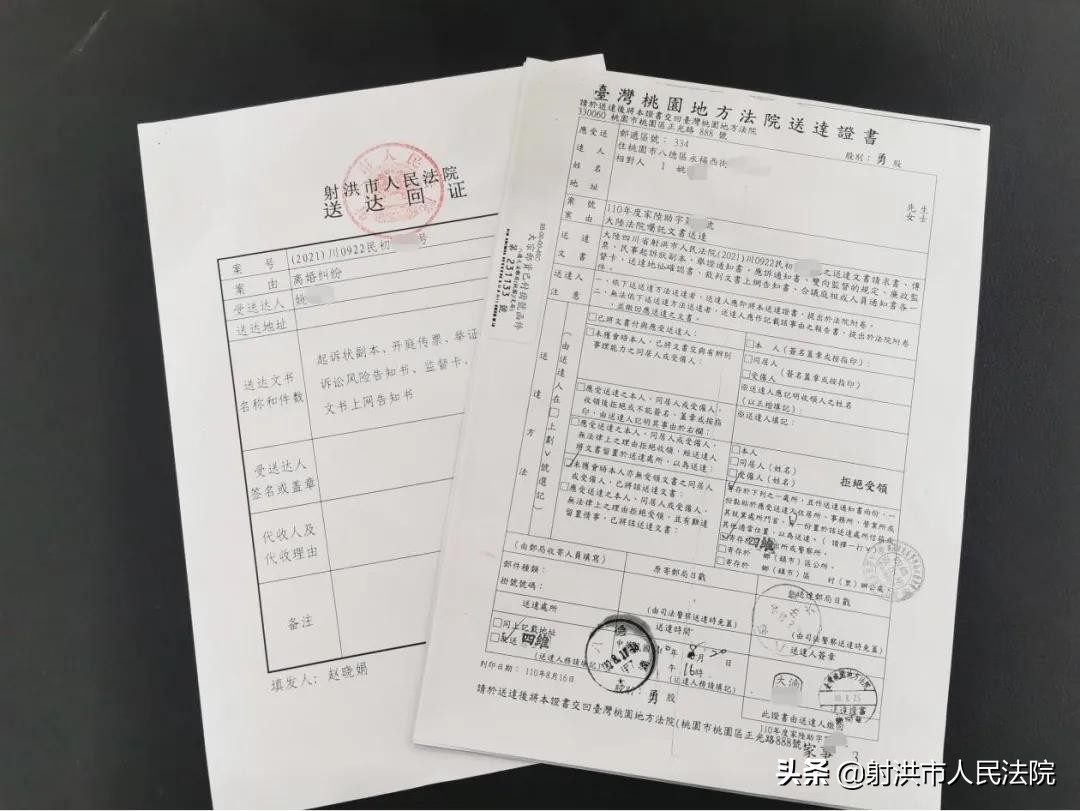 射洪市人民法院
送达回证
案号 (2021)川0922民初 号
案由 离婚纠纷
受送达人 姚
送达地址
送达文书
名称和件数
起诉状副本、开庭传票、举证
诉讼风险告知书、监督卡、
文书上网告知书
受送达人
签名或盖章
代收人及
代收理由
备注
填发人：赵晓娟
臺灣桃園地方法院送達證書
請於送達後將本證書交回臺灣桃園地方法院
330060 桃園市桃園區正光路 888 號
股別：勇 股
應受送達人姓名地址
郵遞區號： 334
住桃園市八德區永福西街
相對人 1 姚
先生
女士
案號 110年度家陸助字
案由 大陸法院囑託文書送達
送達文書
大陸四川省射洪市人民法院(2021)川0922民初 之送達文書請求書、傳
票、民事起訴狀副本、舉證通知書、應訴通知書、雙向監督的規定、廉政監
督卡、送達地址確認書、裁判文書上網告知書、合議庭組成人員通知書各一
件。
送達人注意
一、依下述送達方法送達者，送達人應即將本送達證書，提出於法院附卷。
二、無法依下述送達方法送達者，送達人應作記載該事由之報告書，提出於法院附卷
，並繳回應送達之文書。
送達方法
(由送達人在□上劃V號選記)
□已將文書付與應受送達人：
□本 人 (簽名蓋章或按指印)：
□未獲會晤本人，已將文書交與有辨別
事理能力之同居人或受僱人：
□同居人
□受僱人 (簽名蓋章或按指印)
※送達人應記明收領人之姓名
(以正楷填記)：
□應受送達之本人、同居人或受僱人，
收領後拒絕或不能簽名、蓋章或按指
印，由送達人記明其事由於右欄：
※送達人填記：
□應受送達之本人、同居人或受僱人，
無法律上之理由拒絕收領，經送達人
將文書留置於送達處所，以為送達：
□本人
□同居人(姓名)
□受僱人(姓名)
拒絕受領
未獲會晤本人亦無受領文書之同居人
或受僱人，已將該送達文書：
□應受送達之本人、同居人或受僱人，
無法律上之理由拒絕受領，並有難達
留置情事，已將該送達文書：
寄存於下列之一處所，且作送達通知書兩份，一
份黏貼於應受送達人住居所、事務所、營業所或
其就業處所門首，另一份置於該送達處所信箱或
其他適當位置，以為送達。(請擇一打V)
四維
□寄存於 鄉(鎮市)區公所。
□寄存於 鄉(鎮市)區 村(里)辦公處。
(由郵局收寄人員填寫)
原寄郵局日戳
郵件種類：
掛號號碼：
(由司法警察送達時免蓋)
(由司法警察送達時免蓋)
送達處所
送達時間
送達人簽章
□同上記載地址
四維
(送達人務請填記)
年 8月20日
午16時
(送達人務請填記)
列印日期： 110年8月16日
股別：勇 股
此證書由送達人繳回
110年度家陸助字
請於送達後將本證書交回臺灣桃園地方法院(桃園市桃園區正光路888號
头条 @射洪市人民法院